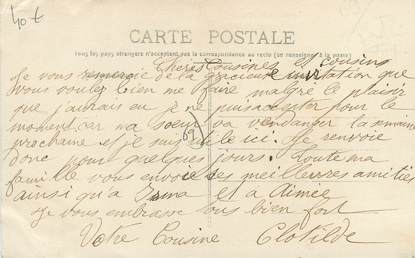 40 €
CARTE POSTALE
Tous les pays étrangers n'acceptent pas la correspondance au recto (se renseigner à la poste)
Chères Cousines et cousins
Je vous remercie de la gracieuse invitation que
vous voulez bien me faire malgré le plaisir
que j'aurais eu je ne puis accepter pour le
moment car ma soeur va vendanger la semaine
prochaine et je suis le ici. Je renvoie
69
donc pour quelques jours. Toute ma
famille vous envoie ses meilleures amitiés
ainsi qu'a Irma et a Aimée
Je vous embrasse tous bien fort
Votre Cousine Clotilde